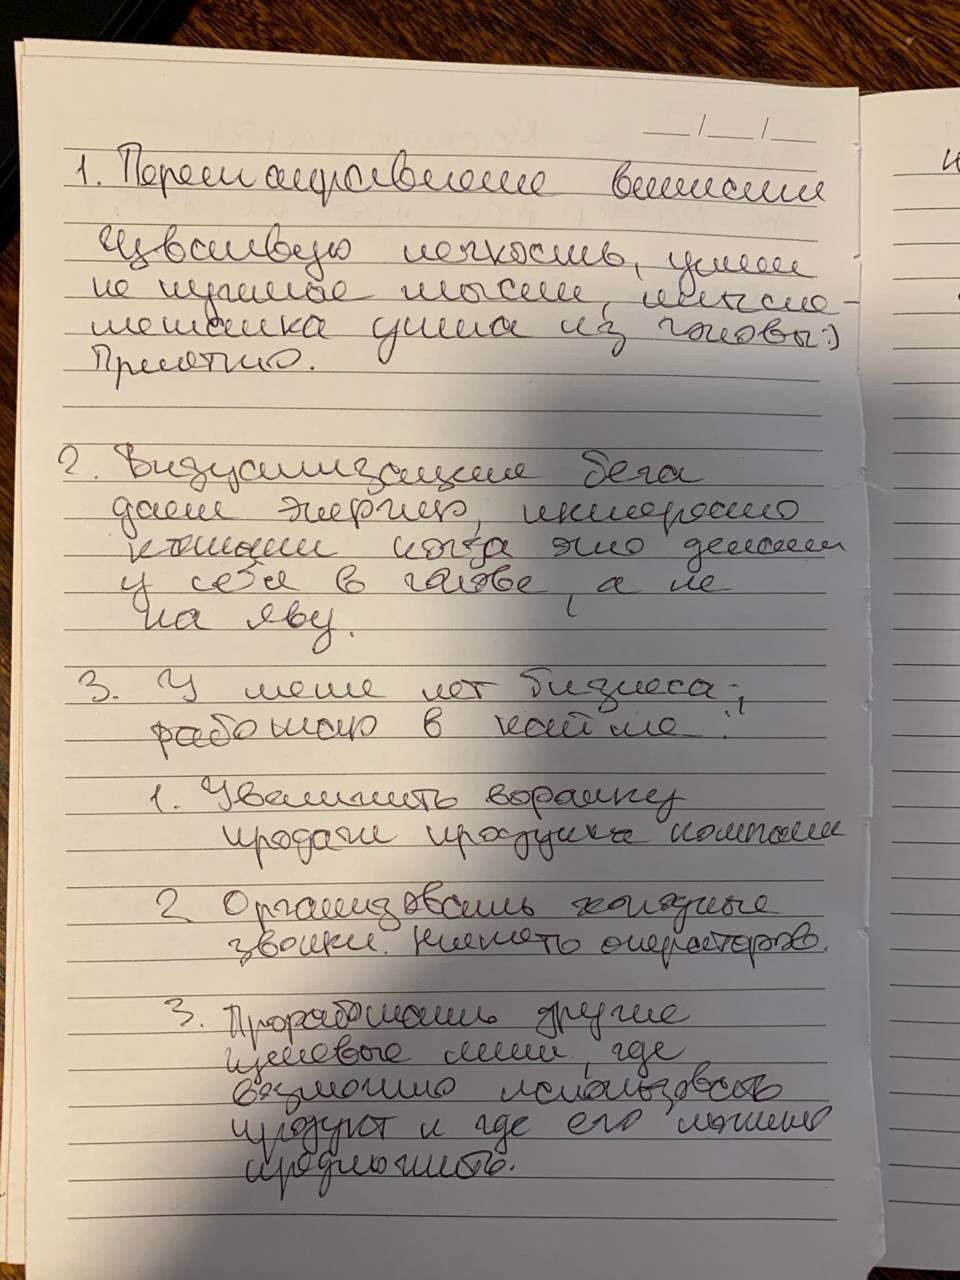 1. Перенаправление внимания
Чувствую легкость, ушли
не нужные мысли,
мешалка ушла из головы:)
Приятно.
2. Визуализация бега
дает энергию, интересно
когда это делаешь
у себя в голове, а не
на яву.
3. У меня нет бизнеса,
работаю в найме:
1. Увеличить воронку
продаж продукта компании
2 Организовать холодные
звонки. Нанять операторов.
3. Проработать другие
целевые ниши, где
возможно использовать
продукт и где его можно
предложить.